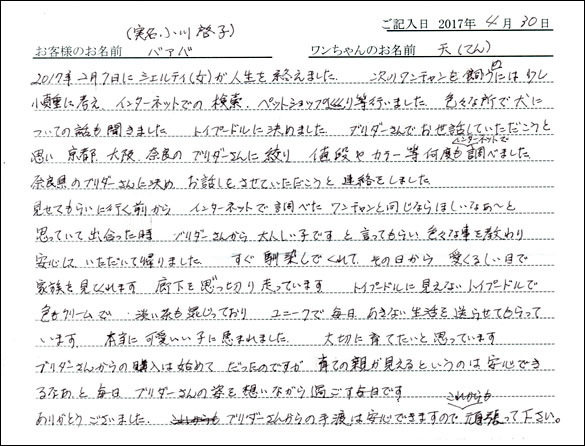 (実名、小川啓子) ご記入日 2017年 4月 30日
お客様のお名前 バアバ ワンちゃんのお名前 天(てん)
2017年2月7日にシェルティ(女)が人生を終えました。 次のワンチャンを飼うのには少し
慎重に考え、インターネットでの検索、ペットショップ巡り等行いました。色々な所で犬に
ついての話も聞きました トイプードルに決めました。 ブリダーさんでお世話していただこうと
思い 京都 大阪 奈良のブリダーさんに絞り 値段やカラー等インターネットで何度も調べました。
奈良県のブリダーさんに決め お話しをさせていただこうと 連絡をしました
見せてもらいに行く前から インターネットで調べた ワンチャンと同じならほしいなあ〜と
思っていて出会った時 ブリダーさんから 大人しい子です と言ってもらい 色々な事を教わり
安心していただいて帰りました。 すぐ馴染んでくれて その日から 愛くるしい目で
家族を見てくれます 廊下を思っ切り走っています トイプードルに見えないトイプードルで
色もクリームで 淡い茶も混じっており ユニークで毎日 あきない生活を送らせてもらって
います 本当に可愛いい子に恵まれました。 大切に育てたいと思っています
ブリダーさんからの購入は始めてだったのですが 育ての親が見えるというのは安心でき
るなあと毎日 ブリダーさんの姿を想いながら過ごす毎日です
ありがとうございました。 ブリダーさんからの手渡は安心できますので これからも頑張って下さい。